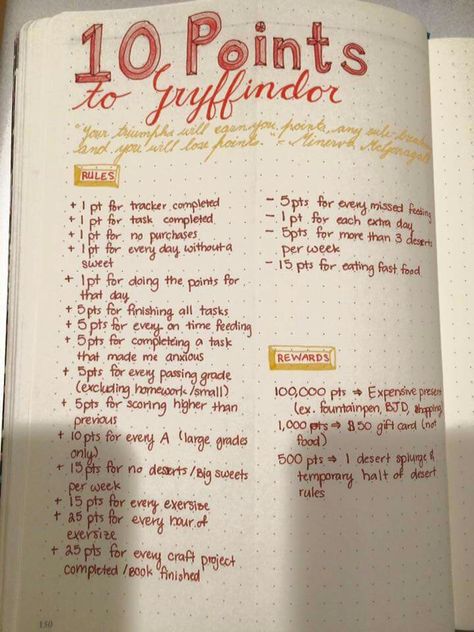 10 Points
to Gryffindor
"Your triumphs will earn you points, any rule-breaking
and you will lose points." - Minerva McGonagall
RULES
+ 1 pt for tracker completed
+ 1 pt for task completed
+ 1 pt for no purchases
+ 1 pt for every day without a
sweet
+ 1pt for doing the points for
that day
+ 5pts for finishing all tasks
+ 5 pts for every on time feeding
+ 5 pts for completeing a task
that made me anxious
+ 5pts for every passing grade
(excluding homework/small)
+ 5pts for scoring higher than
previous
+ 10 pts for every A (large grades
only)
+ 15 pts for no deserts/Big sweets
per week
+ 15 pts for every exersize
+ 25 pts for every hour of
exersize
+ 25 pts for every craft project
completed/Book finished
- 5pts for every missed feeding
- 1 pt for each extra day
- 5pts for more than 3 deserts
per week
- 15 pts for eating fast food
REWARDS
100,000 pts ⇒ Expensive present
(ex. fountainpen, BJD, shopping)
1,000 pts ⇒ $50 gift card (not
food)
500 pts ⇒ 1 desert splurge &
temporary halt of desert
rules
150